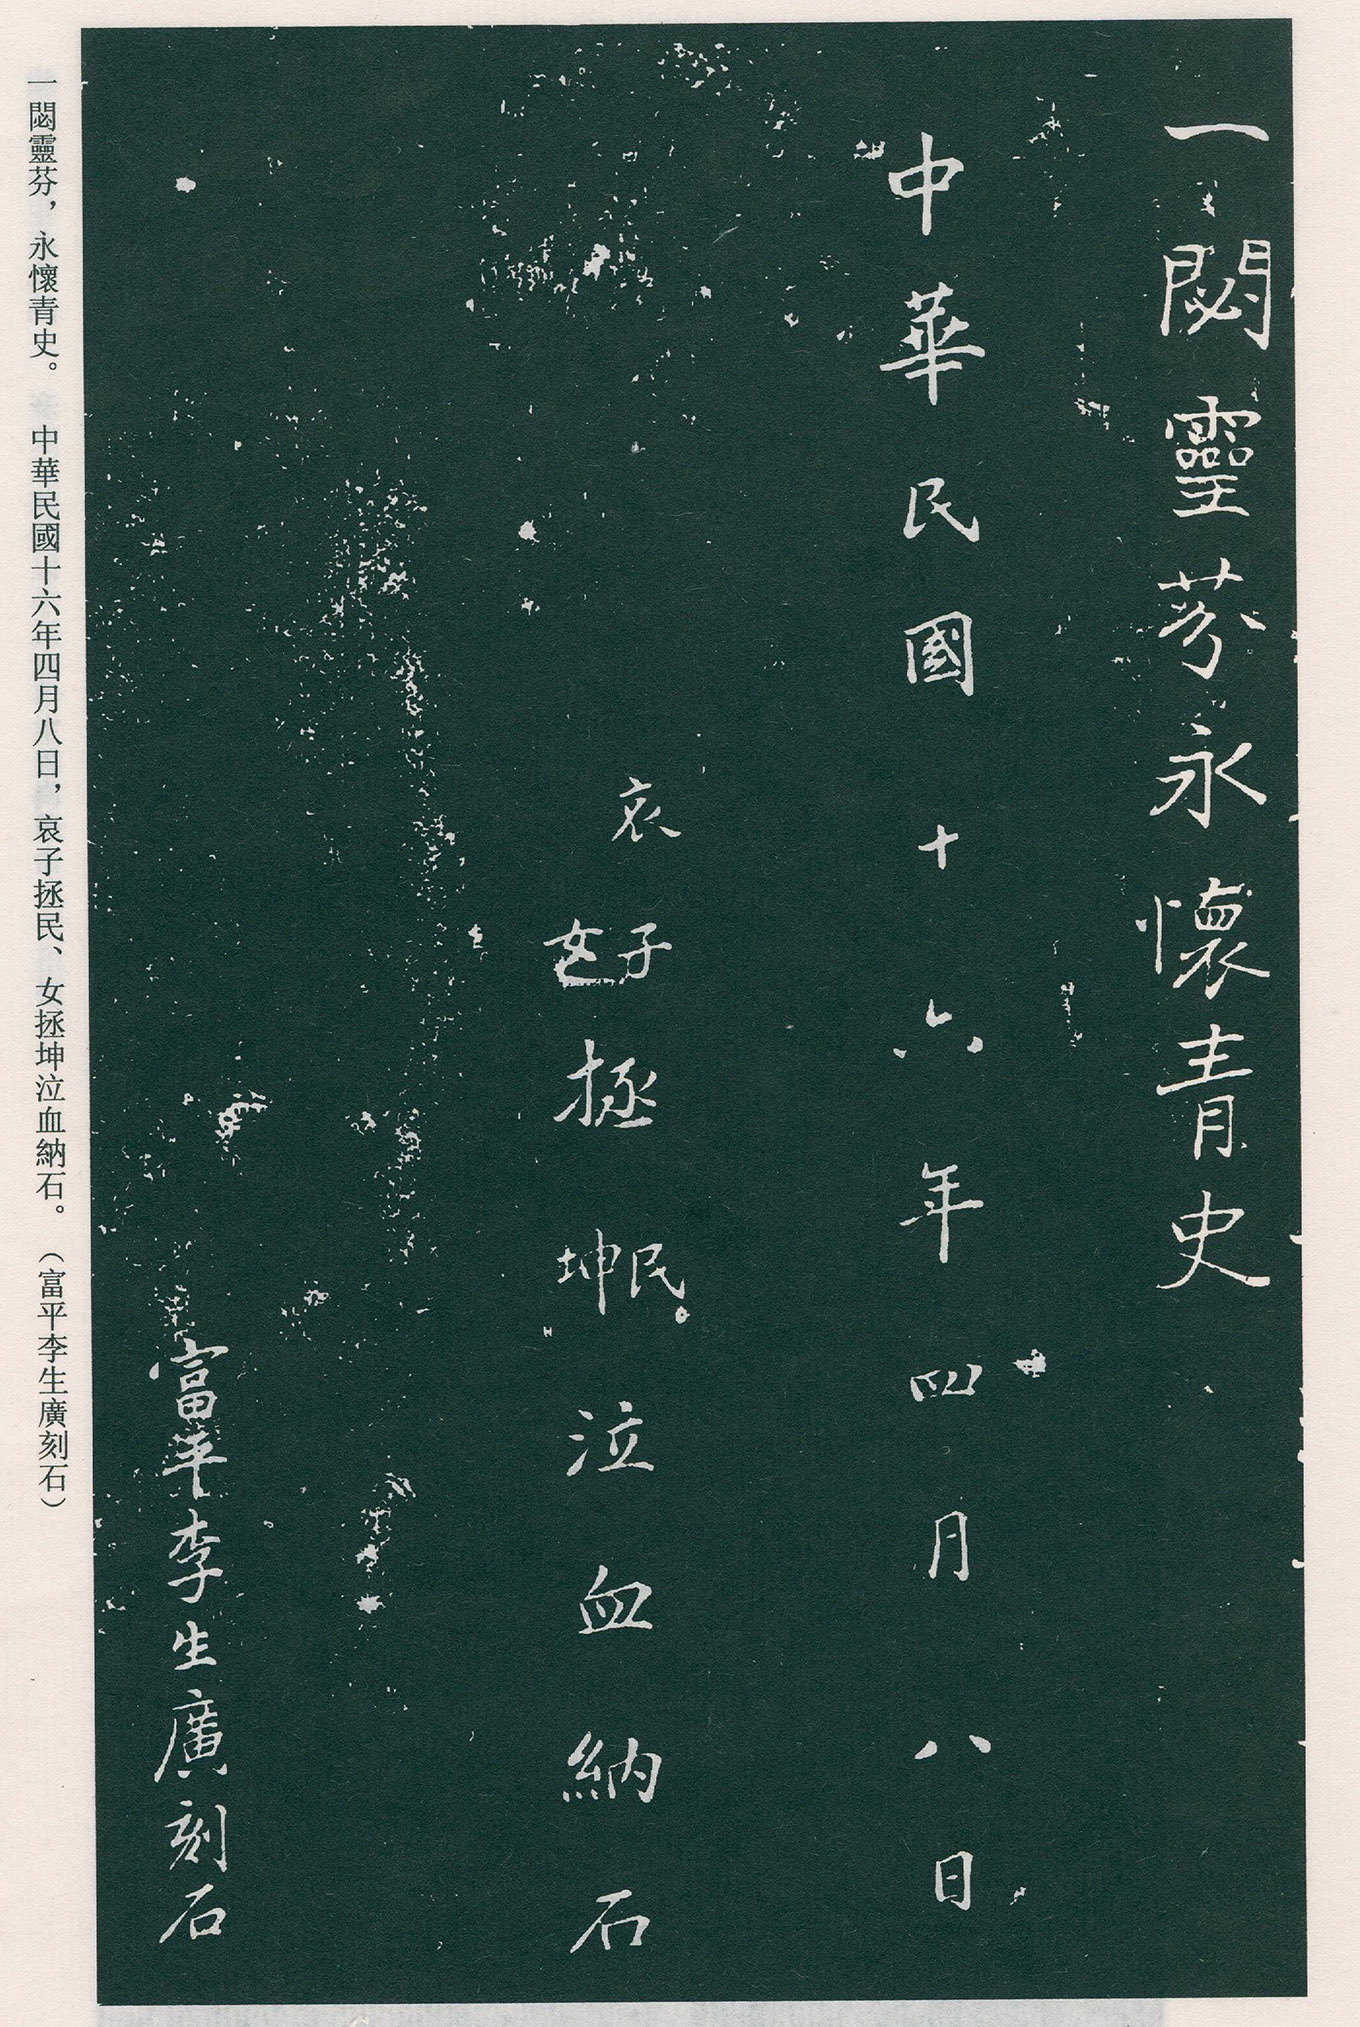 一閟靈芬永懷青史
中華民國十六年四月八日
哀子女拯民坤泣血納石
富平李生廣刻石
一閟靈芬，永懷青史。 中華民國十六年四月八日，哀子拯民、女拯坤泣血納石。 （富平李生廣刻石）